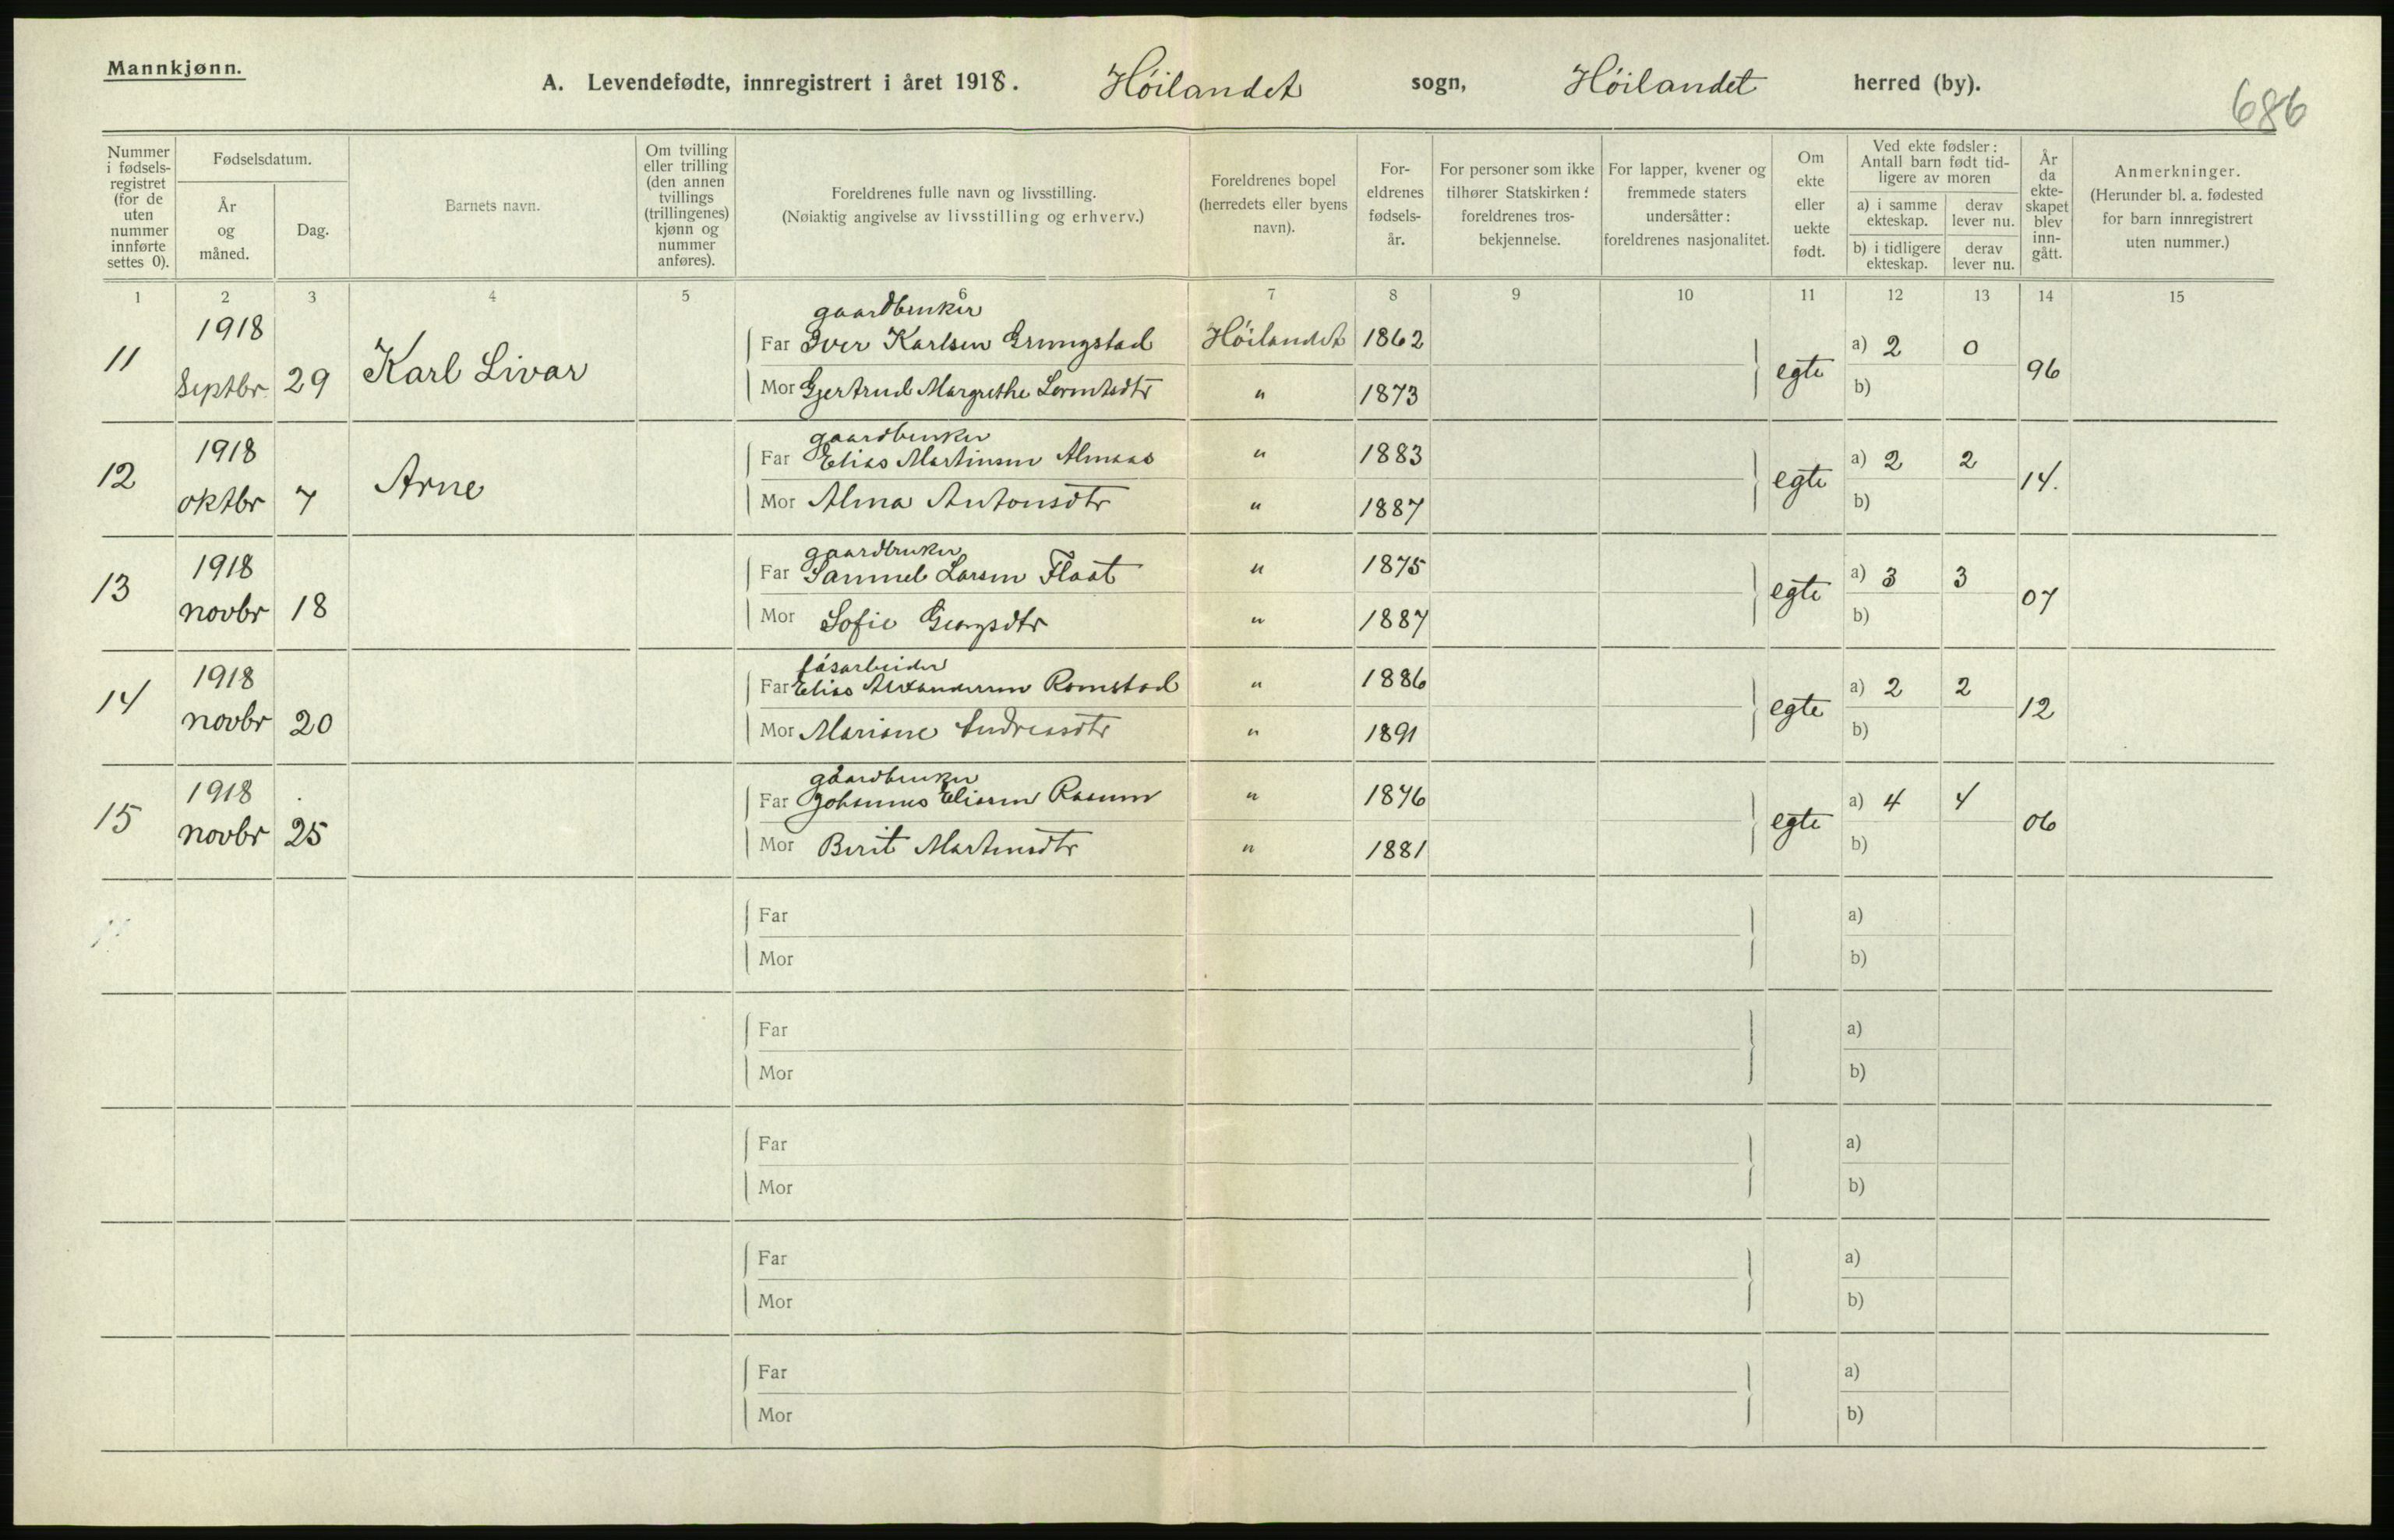 Mannkjønn.
A. Levendefødte, innregistrert i året 1918. Höilandet sogn, Höilandet herred (by).
686
Nummer i fødsels-registret (for de uten nummer innførte settes 0).
Fødselsdatum.
År og måned.
Dag.
Barnets navn.
Om tvilling eller trilling (den annen tvillings (trillingenes) kjønn og nummer anføres).
Foreldrenes fulle navn og livsstilling.
(Nøiaktig angivelse av livsstilling og erhverv.)
Foreldrenes bopel (herredets eller byens navn).
For-eldrenes fødsels-år.
For personer som ikke tilhører Statskirken: foreldrenes tros-bekjennelse.
For lapper, kvener og fremmede staters undersåtter: foreldrenes nasjonalitet.
Om ekte eller uekte født.
Ved ekte fødsler: Antall barn født tid-ligere av moren
a) i samme ekteskap.
derav lever nu.
b) i tidligere ekteskap.
derav lever nu.
År da ekte-skapet blev inn-gått.
Anmerkninger.
(Herunder bl. a. fødested for barn innregistrert uten nummer.)
1 2 3 4 5 6 7 8 9 10 11 12 13 14 15
gaardbruker
11 1918 Septbr. 29 Karl Livar
Far Iver Karlsen Grungstad Höilandet 1862 egte a) 2 0 96
Mor Gjertrud Margrethe Lorntsdtr " 1873 b)
gaardbruker
12 1918 oktbr 7 Arne
Far Elias Martinsen Almaas " 1883 egte a) 2 2 14.
Mor Alma Antonsdtr " 1887 b)
gaardbruker
13 1918 novbr 18
Far Samuel Larsen Flaat " 1875 egte a) 3 3 07
Mor Sofie Georgsdtr " 1887 b)
løsarbeider
14 1918 novbr 20
Far Elias Alexandersen Romstad " 1886 egte a) 2 2 12
Mor Mariane Andreasdtr " 1891 b)
gaardbruker
15 1918 novbr 25
Far Johannes Eliasen Rasum " 1876 egte a) 4 4 06
Mor Berit Martinsdtr " 1881 b)
Far a)
Mor b)
Far a)
Mor b)
Far a)
Mor b)
Far a)
Mor b)
Far a)
Mor b)